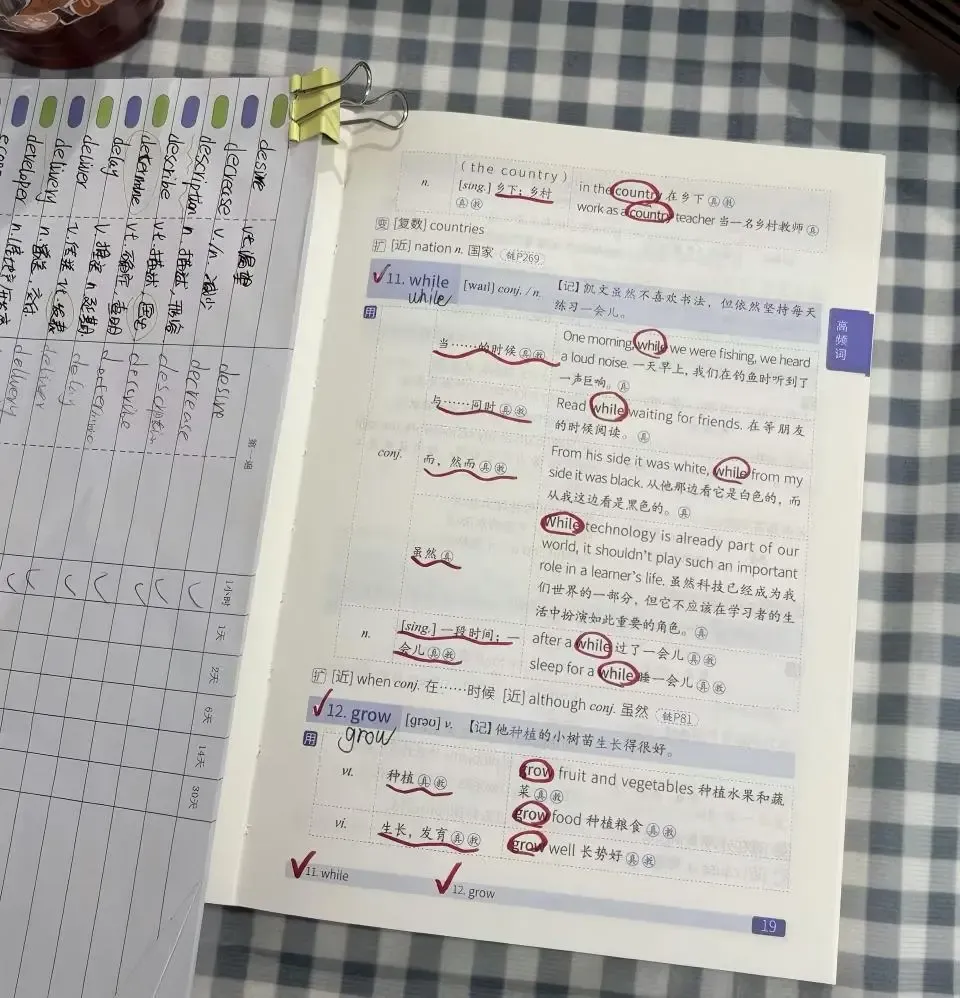 ( the country )
n.
[sing.] 乡下；乡村
真 教
in the country 在乡下 真 教
work as a country teacher 当一名乡村教师 真
变 [复数] countries
扩 [近] nation n. 国家 链P269
11. while [waɪl] conj. / n. 【记】凯文虽然不喜欢书法，但依然坚持每天
练习一会儿。
while
高频词
用
conj.
当……的时候 真 教
One morning, while we were fishing, we heard
a loud noise. 一天早上，我们在钓鱼时听到了
一声巨响。真
与……同时 真 教
Read while waiting for friends. 在等朋友
的时候阅读。真
而，然而 真 教
From his side it was white, while from my
side it was black. 从他那边看它是白色的，而
从我这边看是黑色的。真
虽然 真
While technology is already part of our
world, it shouldn't play such an important
role in a learner's life. 虽然科技已经成为我
们世界的一部分，但它不应该在学习者的生
活中扮演如此重要的角色。真
n.
[sing.] 一段时间；一
会儿 真 教
after a while 过了一会儿 真 教
sleep for a while 睡一会儿 真 教
扩 [近] when conj. 在……时候 [近] although conj. 虽然 链P81
12. grow [ɡrəʊ] v. 【记】他种植的小树苗生长得很好。
grow
用
vt.
种植 真 教
grow fruit and vegetables 种植水果和蔬
菜 真 教
grow food 种植粮食 真 教
vi.
生长，发育 真 教
grow well 长势好 真 教
11. while
12. grow
19
desire vt. 渴望 desire
decrease v./n. 减小 decrease
description n. 描述
describe vt. 描述
determine vt. 确定
delay v. 推迟 n. 延期 delay
deliver deliver
delivery n. delivery
developer n.
第一遍
1小时
1天
2天
6天
14天
30天